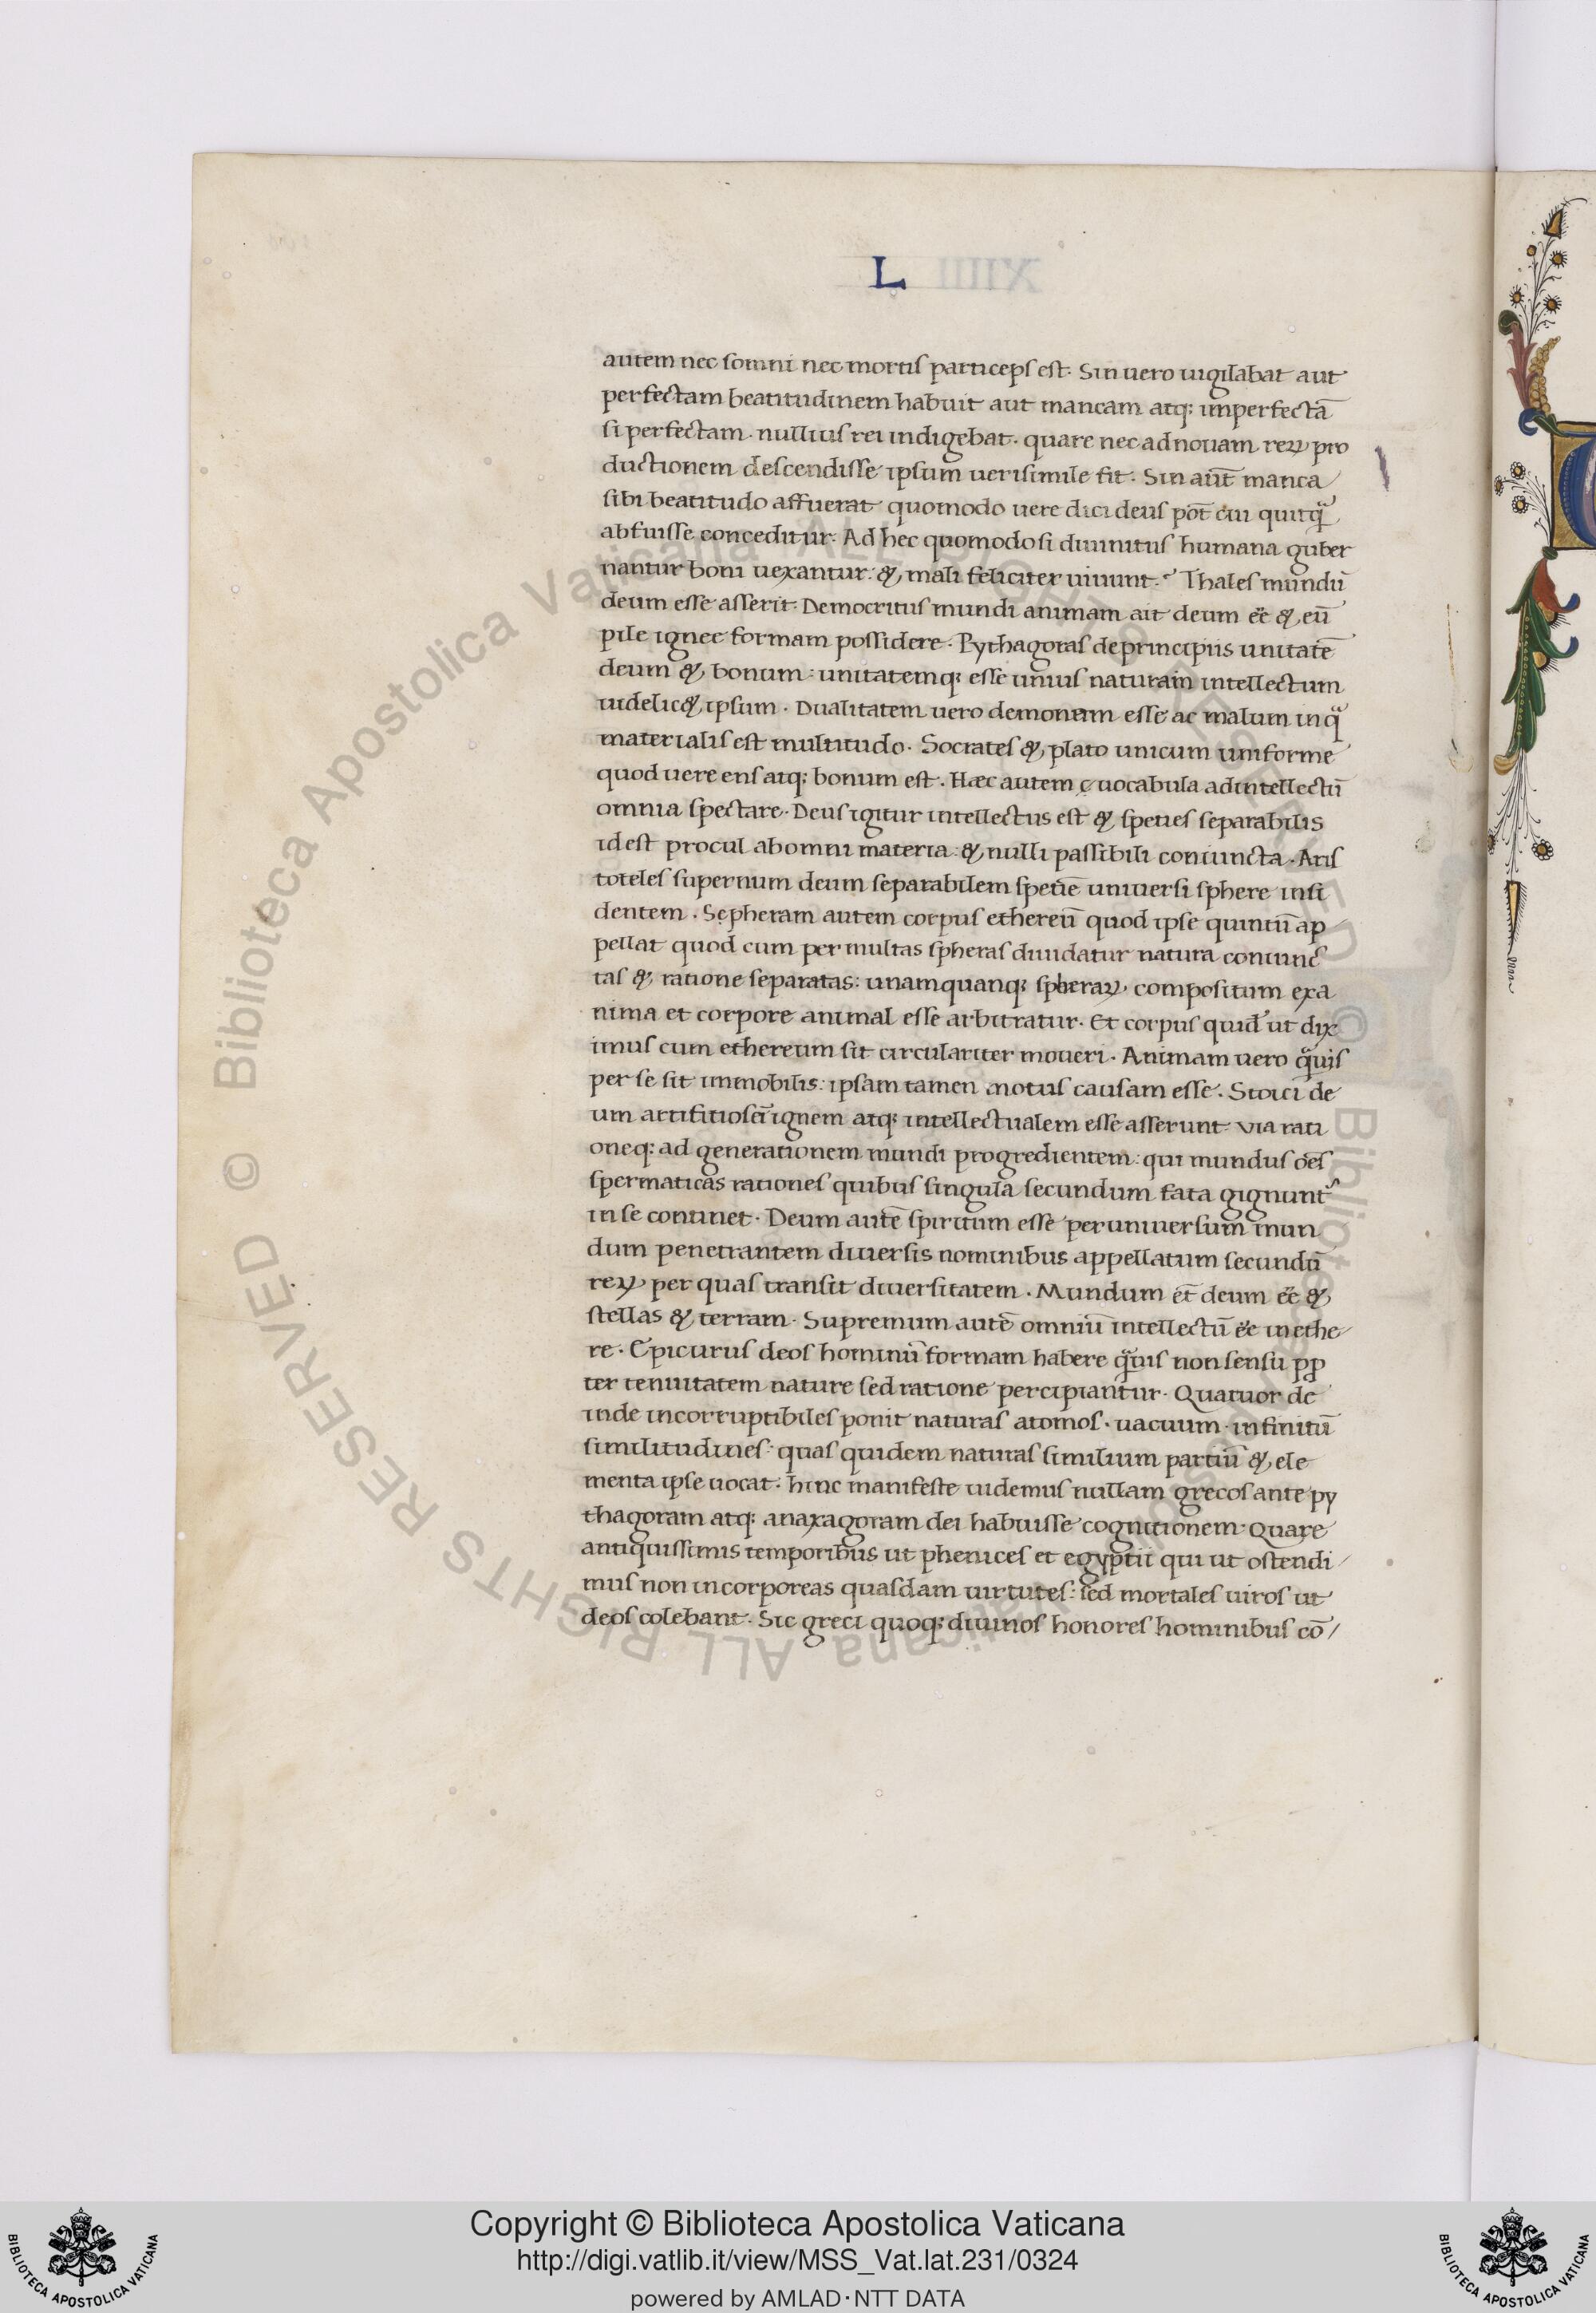 L
autem nec somni nec mortis particeps est: Sin uero uigilabat aut
perfectam beatitudinem habuit aut mancam atq; imperfectā
si perfectam. nullius rei indigebat. quare nec ad nouam reꝝ pro
ductionem descendisse ipsum uerisimile fit. Sin aūt manca
sibi beatitudo affuerat quomodo uere dici deus pōt cui quitq̃
abfuisse conceditur: Ad hec quomodo si diuinitus humana guber
nantur boni uexantur: & mali feliciter uiuunt? Thales mundū
deum esse asserit: Democritus mundi animam ait deum eē & eū
pile ignee formam possidere. Pythagoras de principiis unitatē
deum & bonum: unitatemq; esse unius naturam intellectum
uidelic& ipsum. Dualitatem uero demonem esse ac malum in q̃
materialis est multitudo. Socrates & plato unicum uniforme
quod uere ens atq; bonum est. Hæc autem ę uocabula ad intellectū
omnia spectare. Deus igitur intellectus est & speties separabilis
id est procul ab omni materia: & nulli passibili coniuncta. Aris
toteles supernum deum separabilem spetiē uniuersi sphere insi
dentem. Sepheram autem corpus ethereū quod ipse quintū ap
pellat quod cum per multas spheras diuidatur natura coniunc
tas & ratione separatas: unamquanq; spheraꝝ compositum ex a
nima et corpore animal esse arbitratur. Et corpus quid̛ ut dix
imus cum ethereum sit circulariter moueri. Animam uero q̃uis
per se sit immobilis: ipsam tamen motus causam esse. Stoici de
um artifitiosū ignem atq; intellectualem esse asserunt: uia rati
oneq; ad generationem mundi progredientem: qui mundus oēs
spermaticas rationes quibus singula secundum fata gignunt᷒
in se continet. Deum autē spiritum esse per uniuersum mun
dum penetrantem diuersis nominibus appellatum secundū
reꝝ per quas transit diuersitatem. Mundum ēt deum eē &
stellas & terram. Supremum autē omniū intellectū eē in ethe
re. Epicurus deos hominū formam habere q̃uis non sensu ꝓp
ter tenuitatem nature sed ratione percipiantur. Quatuor de
inde incorruptibiles ponit naturas atomos. uacuum. infinitū
similitudines: quas quidem naturas similium partiū & ele
menta ipse uocat. hinc manifeste uidemus nullam grecos ante py
thagoram atq; anaxagoram dei habuisse cognitionem. Quare
antiquissimis temporibus ut phenices et egyptii qui ut ostendi
mus non incorporeas quasdam uirtutes: sed mortales uiros ut
deos colebant. Sic greci quoq; diuinos honores hominibus cō
© Biblioteca Apostolica Vaticana ALL RIGHTS RESERVED © Biblioteca Apostolica Vaticana ALL RIGHTS RESERVED
Copyright © Biblioteca Apostolica Vaticana
http://digi.vatlib.it/view/MSS_Vat.lat.231/0324
powered by AMLAD·NTT DATA
BIBLIOTECA APOSTOLICA VATICANA
BIBLIOTECA APOSTOLICA VATICANA